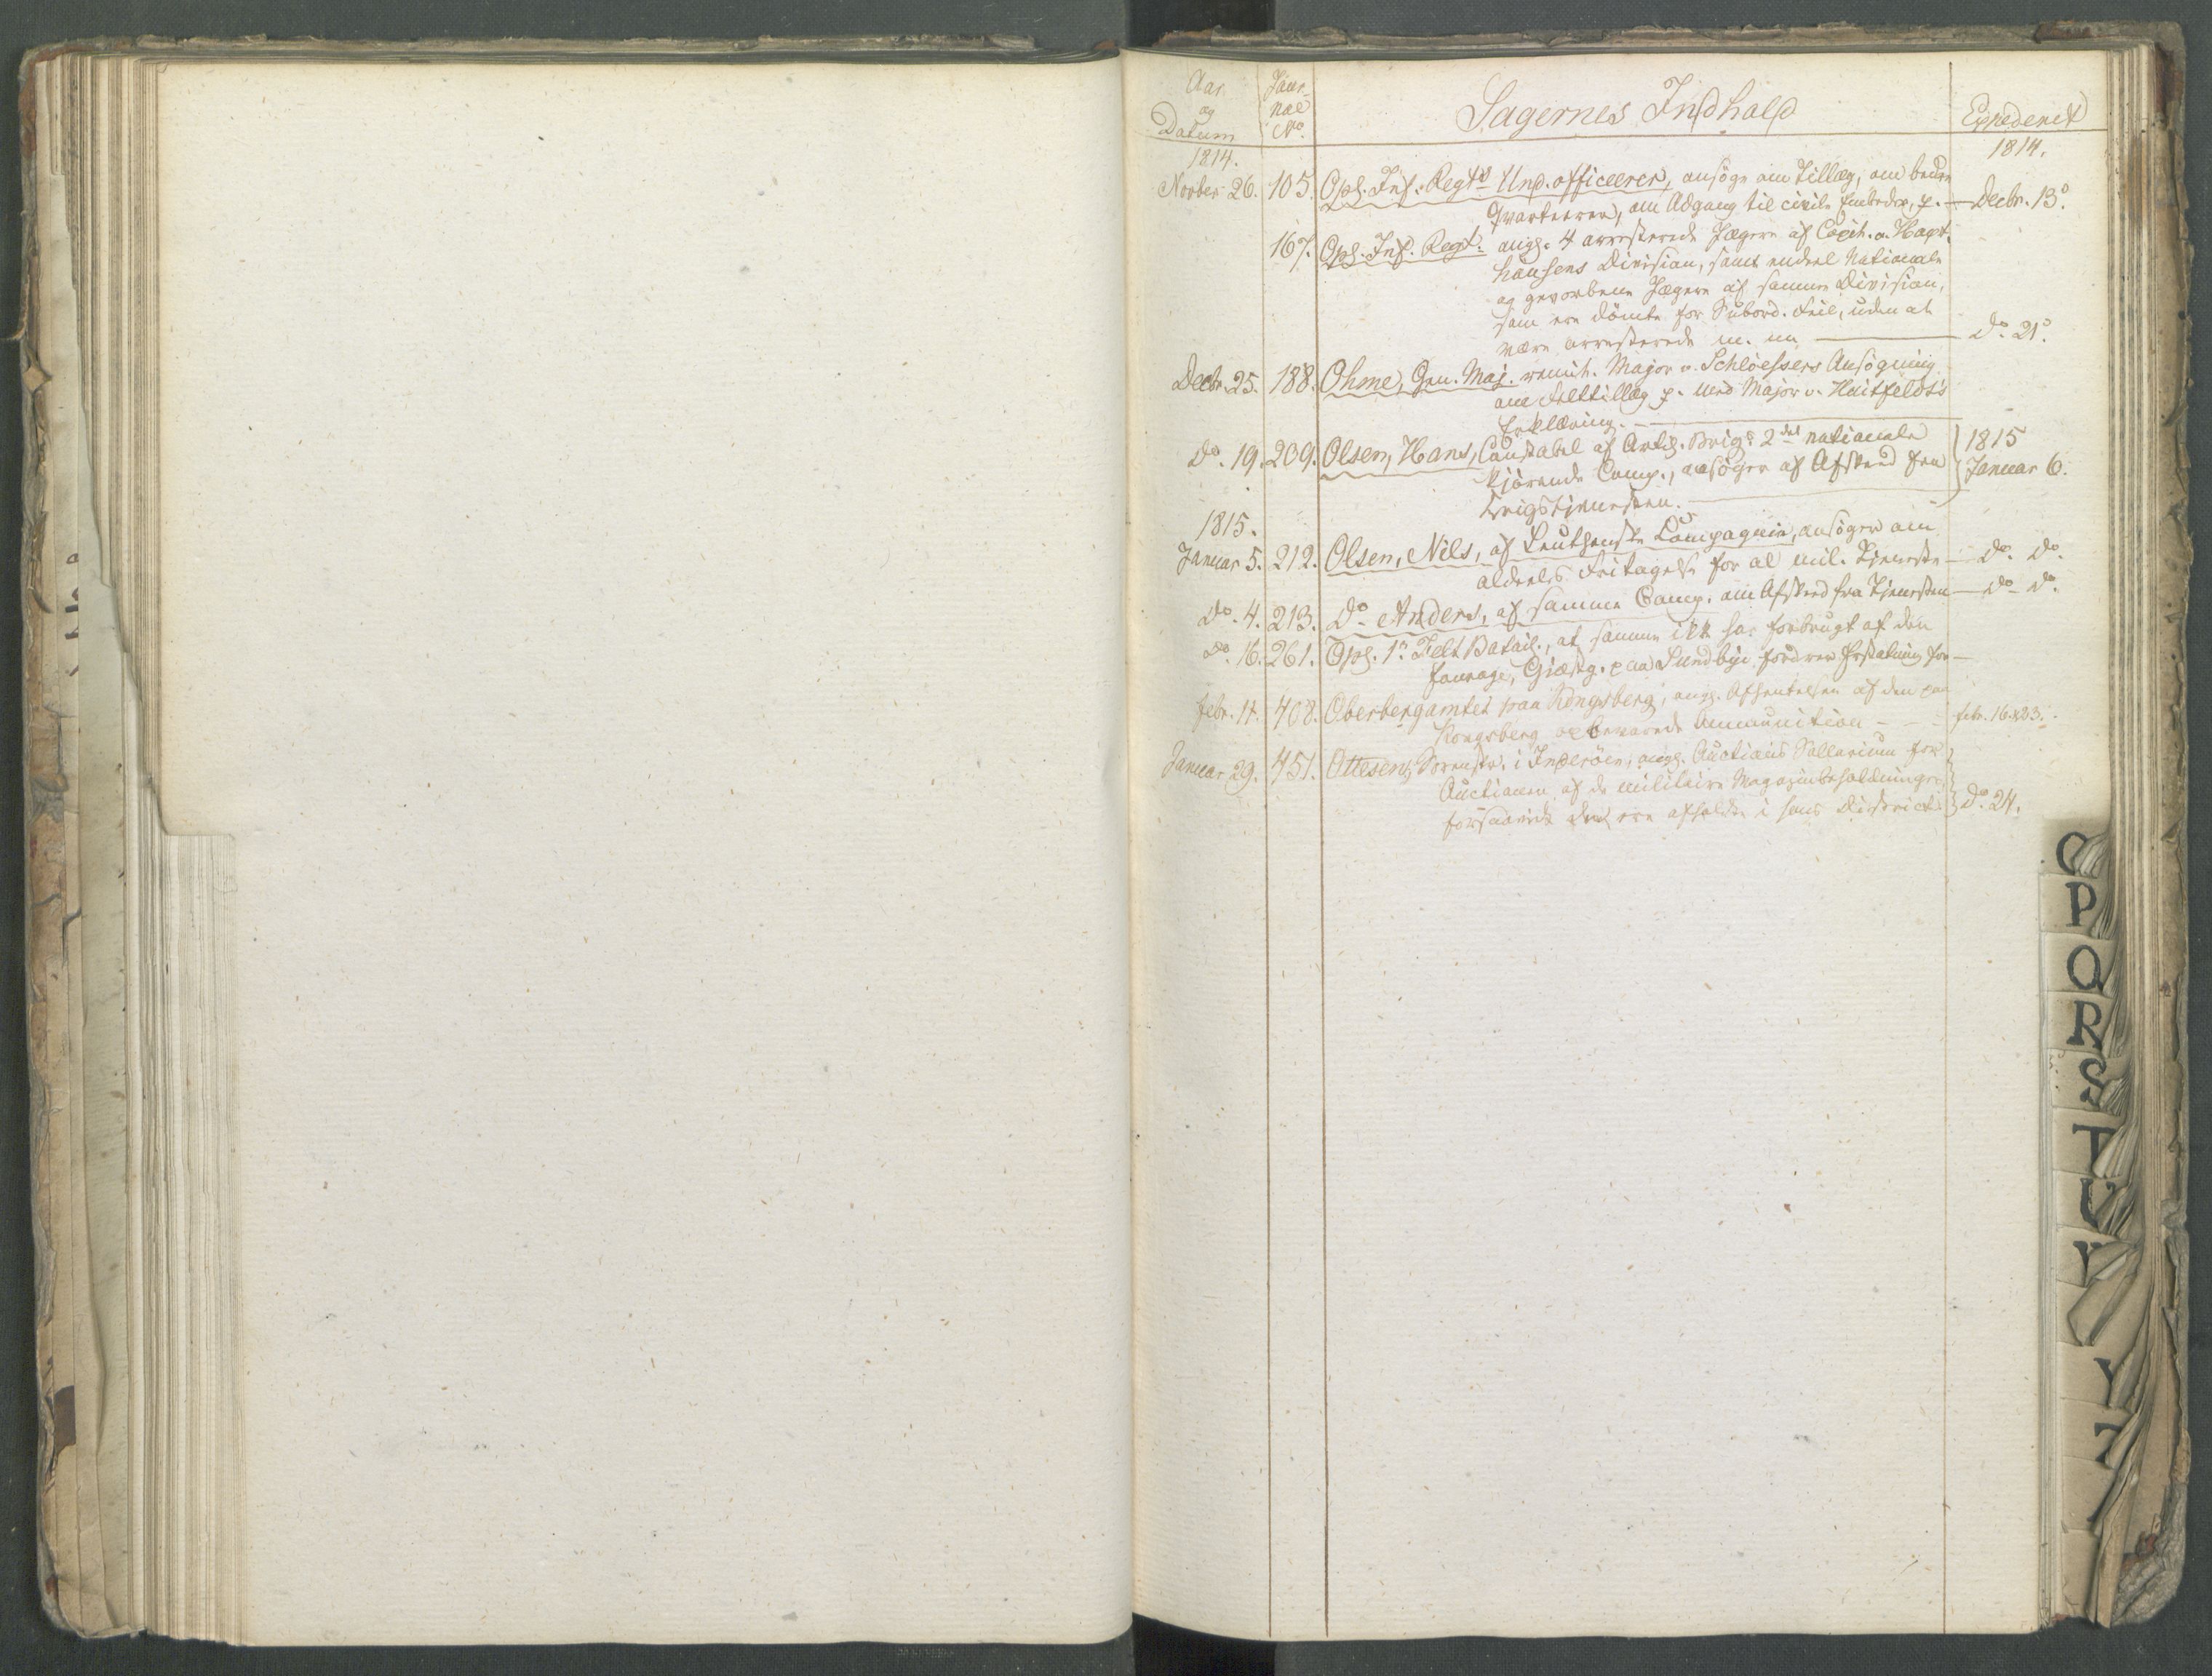 Aar og Datum
Jour-nal No.
Sagernes Indhold
Expederet
1814.
1814.
Novber 26. 105. Opl. Inf. Regts Und.officeerer, ansøge om Tillæg, om bedre
Qvarteerer, om Adgang til civile Embeder, p. — Decbr. 13.
167. Opl. Inf. Regt. angs. 4 arresterede Jægere af Capit. v. Haxt-
hausens Division, samt endeel Nationale
og gevorbene Jægere af samme Division,
som ere dömte for Subord. Feil, uden at
være arresterede m. m. — Do. 21.
Decbr. 25. 188. Ohme, Gen. Maj. remit. Major v. Schlöessers Ansögning
om Felttillæg p. med Major v. Huitfeldt's
Erklæring. —
Do. 19. 209. Olsen, Hans, Constabel af Artil. Brig. 2den nationale
kjörende Comp., ansöger af Afskeed fra
Krigstjenesten. —
1815
Januar 6.
1815.
Januar 5. 212. Olsen, Nils, af Leuthenske Compagnie, ansöger om
aldeeles Fritagelse for al mil. Tjeneste — do. do.
Do. 4. 213. Do Anders, af samme Comp. om Afskeed fra Tjenesten — do - do.
Do. 16. 261. Opl. 1e Felt Batail., at samme ikk har forbrugt af den
Fourage, Giæstg. paa Sundbye fordrer Erstatning for —
Febr. 11. 408. Oberbergamtet paa Kongsberg, angs. Afhentelsen af den paa
Kongsberg opbevarede Ammunition - - - febr. 16. & 23.
Januar 29. 451. Ottesen, Sorenskr. i Inderöen, angs. Auctions Sallarium for
Auctionen af de militaire Magazinbeholdninger
forsaavidt den ere afholdte i hans District Do. 24.
O
P
Q
R
S
T
U
V
Y
Z